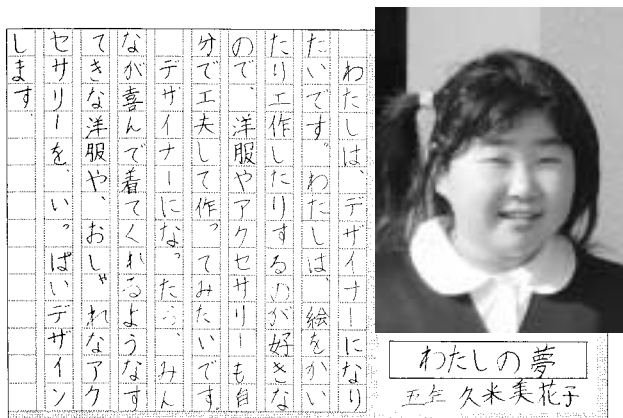 わたしの夢
五年 久米美花子
わたしは、デザイナーになり
たいです。わたしは、絵をかい
たり工作したりするのが好きな
ので、洋服やアクセサリーも自
分で工夫して作ってみたいです。
デザイナーになったら、みん
なが喜んで着てくれるようなす
てきな洋服や、おしゃれなアク
セサリーを、いっぱいデザイン
します。